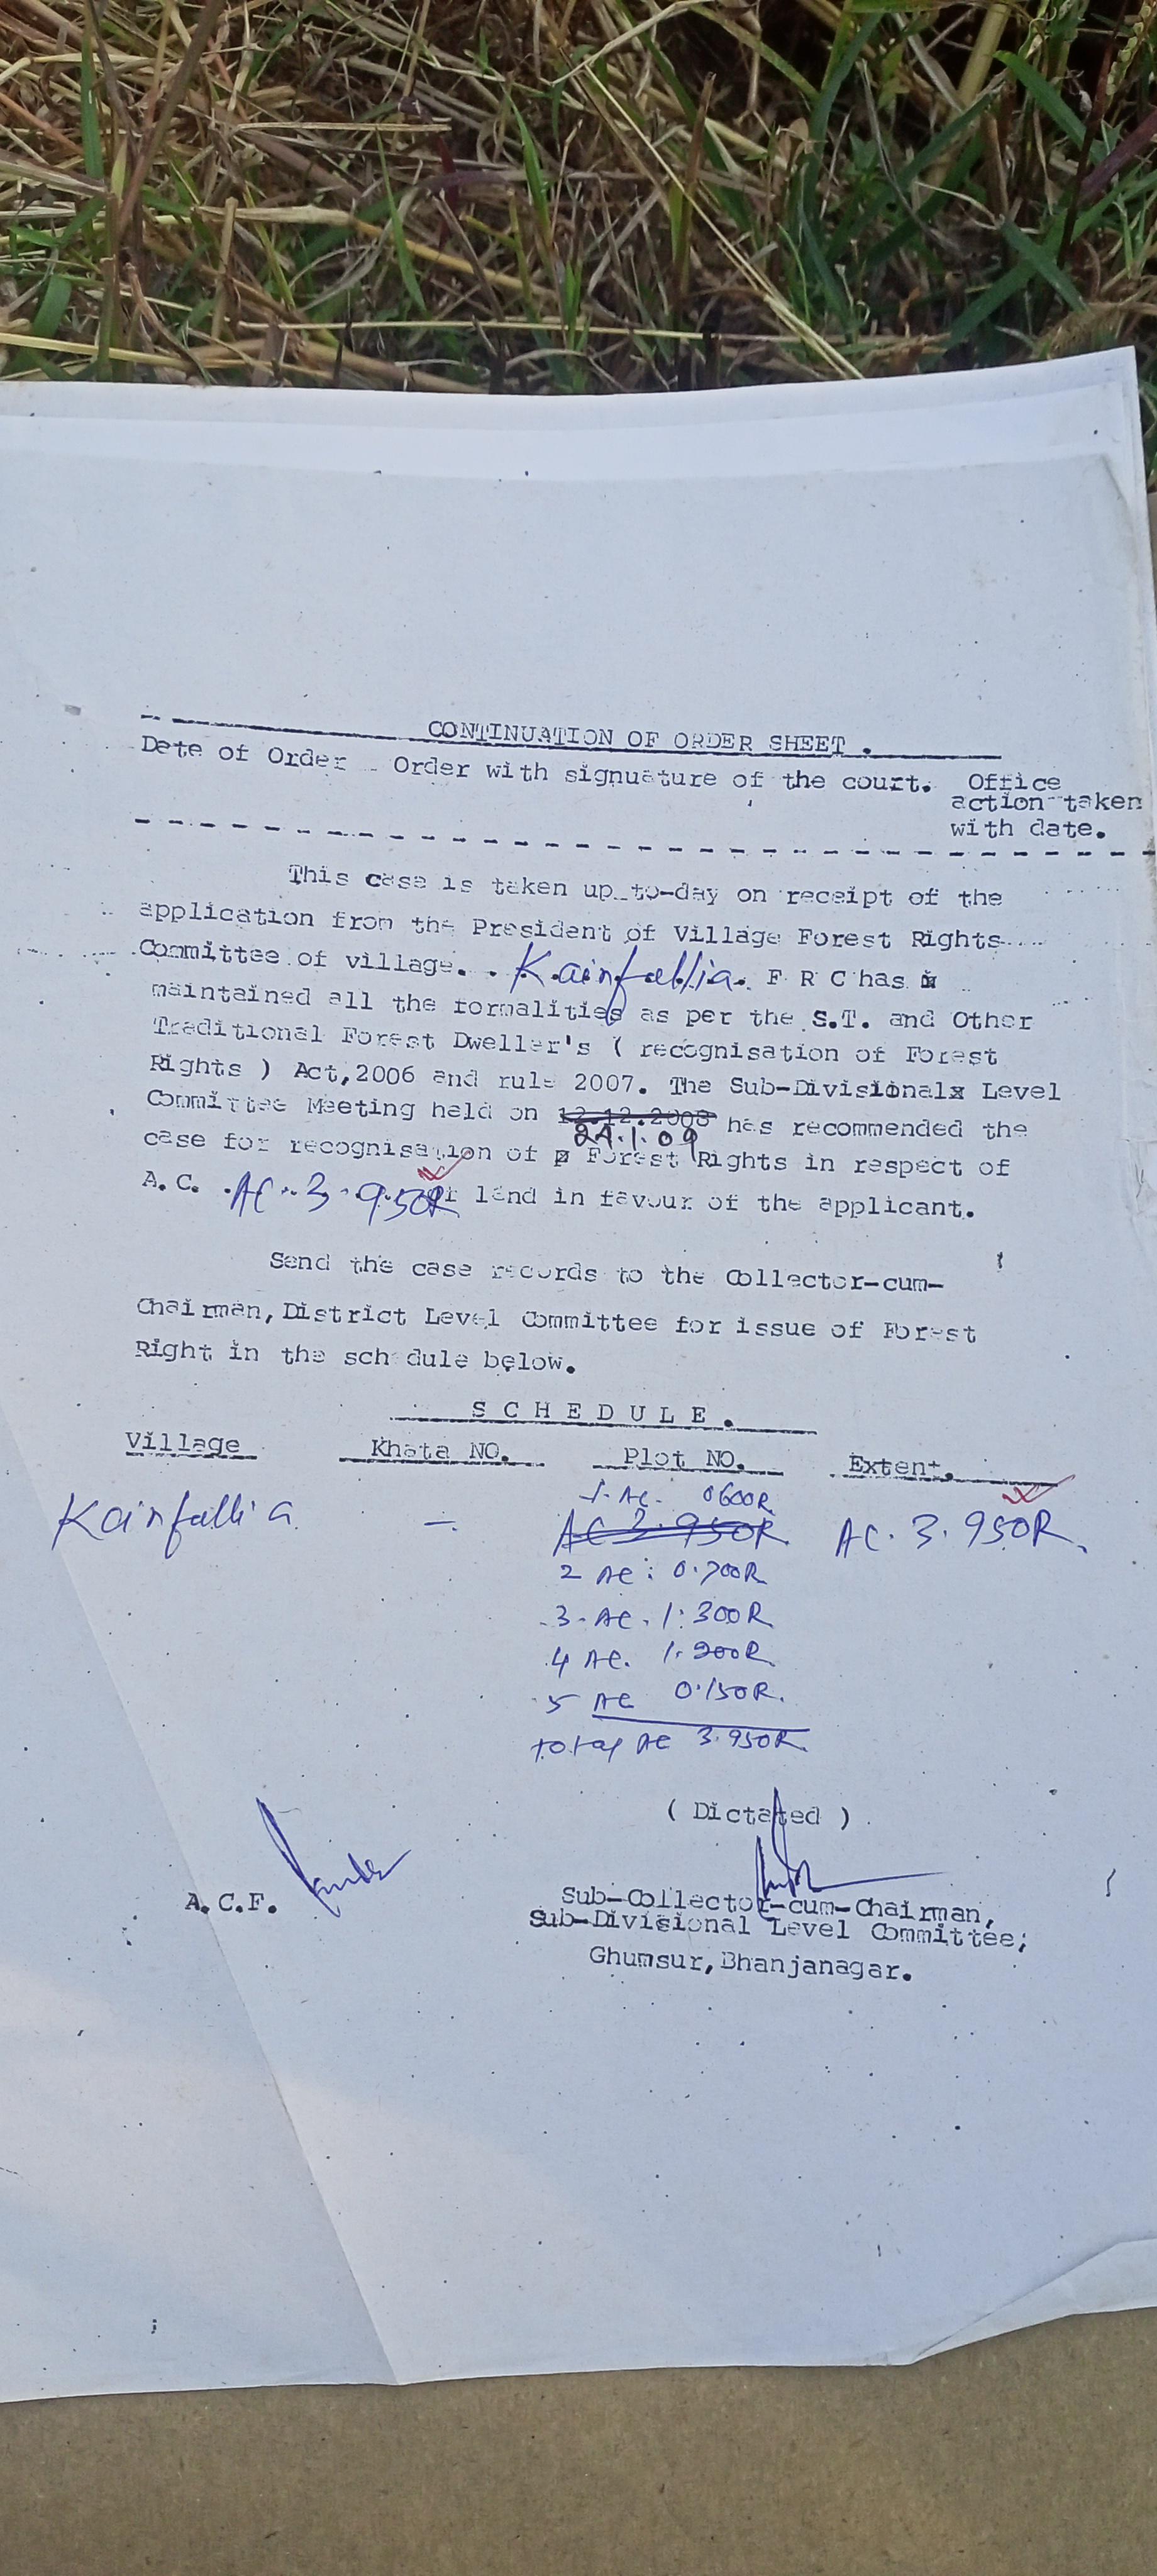 CONTINUATION OF ORDER SHEET.
Date of Order Order with signuature of the court. Office
action taken
with date.
This case is taken up to-day on receipt of the
application from the President of Village Forest Rights
Committee of village. Kainfallia. F R C has
maintained all the formalities as per the S.T. and Other
Traditional Forest Dweller's ( recognisation of Forest
Rights ) Act,2006 and rule 2007. The Sub-Divisionalx Level
Committee Meeting held on 12.12.2008 has recommended the
24.1.09
case for recognisation of Forest Rights in respect of
A.C. AC. 3.950R land in favour of the applicant.
Send the case records to the Collector-cum-
Chairman, District Level Committee for issue of Forest
Right in the schedule below.
SCHEDULE.
Village Khata NO. Plot NO. Extent.
1. AC. 0600R
Kainfallia - AC 3.950R AC. 3.950R.
2 AC: 0.700R
3. AC. 1.300R
4 AC. 1.200R
5 AC 0.150R.
total AC 3.950R
( Dictated )
A.C.F.
Sub-Collector-cum-Chairman,
Sub-Divisional Level Committee;
Ghumsur, Bhanjanagar.